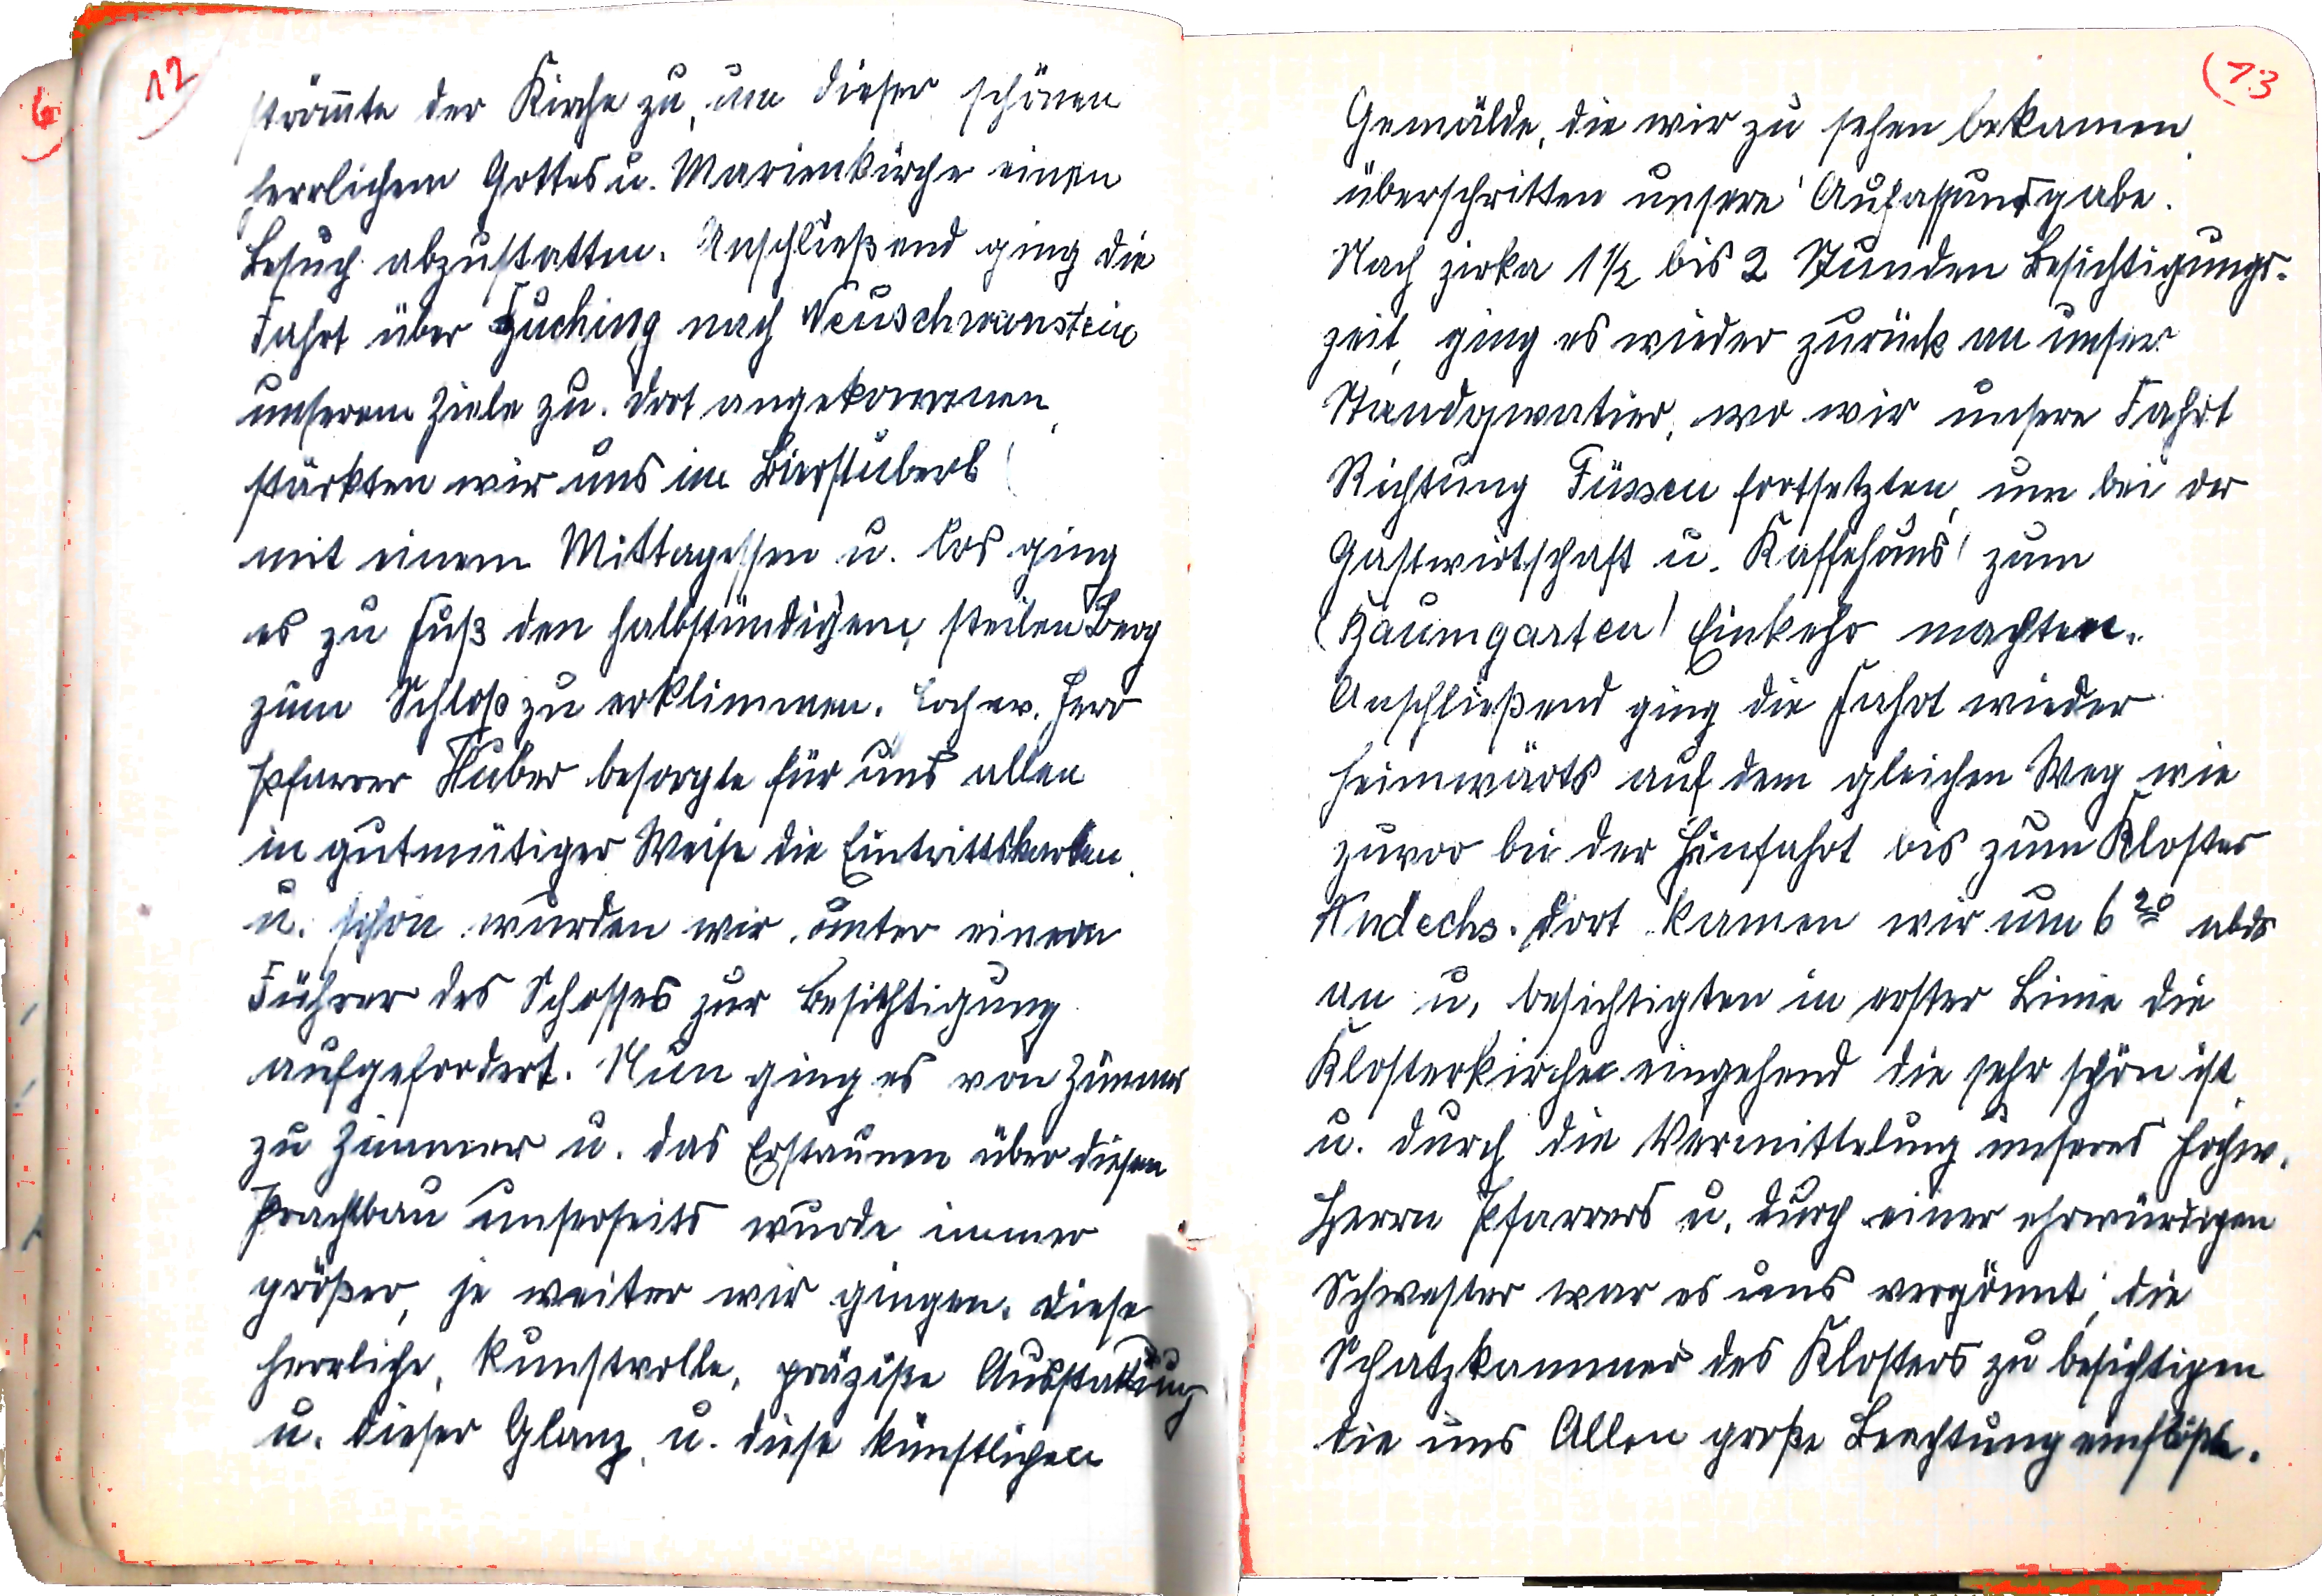 12
strömte der Kirche zu, um dieser schönen
herrlichem Gottes u. Marienkirche einen
Besuch abzustatten. Anschließend ging die
Fahrt über Buching nach Neuschwanstein
unserem Ziele zu. Dort angekommen,
stärkten wir uns im Bierstüberl
mit einem Mittagessen u. los ging
es zu Fuß den halbstündigem, steilen Berg
zum Schloß zu erklimmen. Hochw. Herr
Pfarrer Huber besorgte für uns allen
in gutmütiger Weise die Eintrittskarten.
u. schon wurden wir unter einem
Führer des Schosses zur Besichtigung
aufgefordert. Nun ging es von Zimmer
zu Zimmer u. das Erstaunen über diesen
Prachtbau unserseits wurde immer
größer, je weiter wir gingen. Diese
herrliche, kunstvolle, präziße Ausstattung
u. dieser Glanz, u. diese künstlichen
6
13
Gemälde, die wir zu sehen bekamen,
überschritten unsere Aufassungsgabe.
Nach zirka 1½ bis 2 Stunden Besichtigungs-
zeit, ging es wieder zurück an unser
Standqwatier, wo wir unsere Fahrt
Richtung Füssen fortsetzten, um bei der
Gastwirtschaft u. Kaffehaus zum
(Baumgarten) Einkehr machten.
Anschließend ging die Fahrt wieder
heimwärts auf dem gleichen Weg wie
zuvor bei der Hinfahrt bis zum Kloster
Andechs. Dort kamen wir um 6 20 abds
an u. besichtigten in erster Linie die
Klosterkirche eingehend die sehr schön ist,
u. durch die Vermittelung unseres Hochw.
Herrn Pfarrers u. durch einer ehrwürdigen
Schwester war es uns vergönnt, die
Schatzkammer des Klosters zu besichtigen
die uns Allen große Beachtung einflößte.